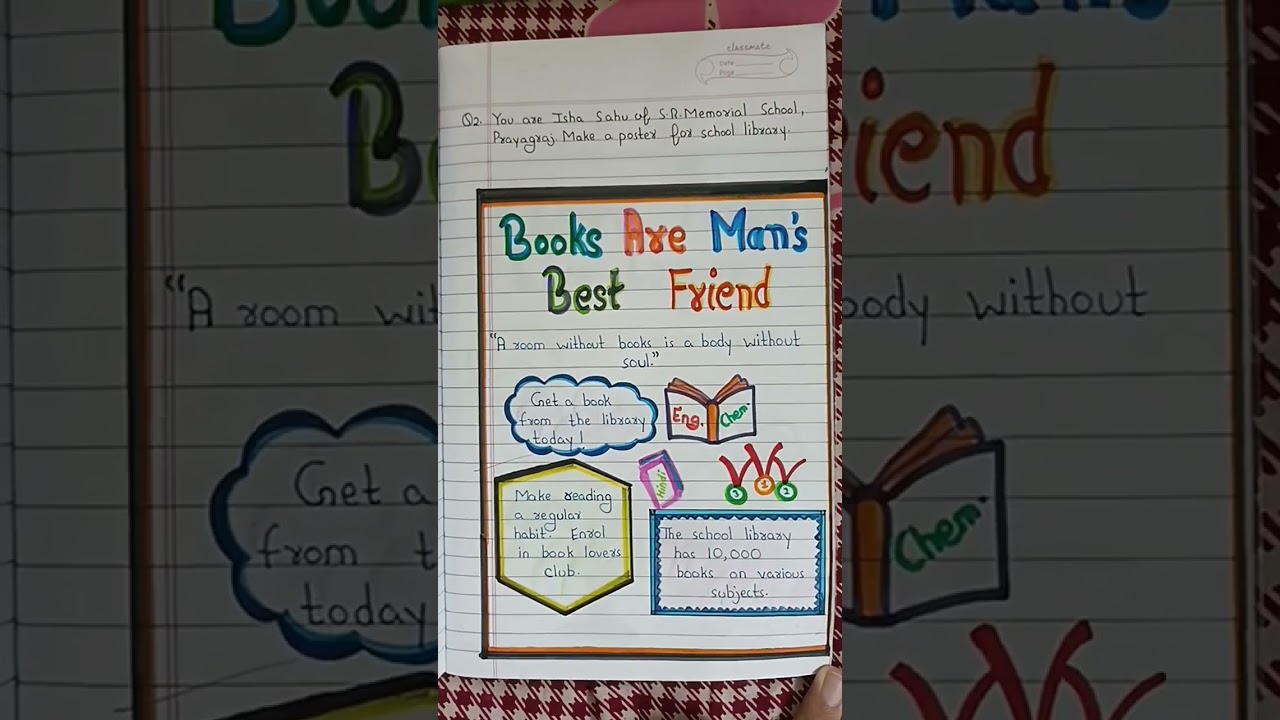 classmate
Date
Page
Q2. You are Isha Sahu of S.R. Memorial School,
Prayagraj. Make a poster for school library.
Books Are Man's
Best Friend
"A room without books is a body without
soul."
Get a book
from the library
today!
Eng.
Chem.
Hindi
Make reading
a regular
habit. Enrol
in book lovers
club.
The school library
has 10,000
books on various
subjects.